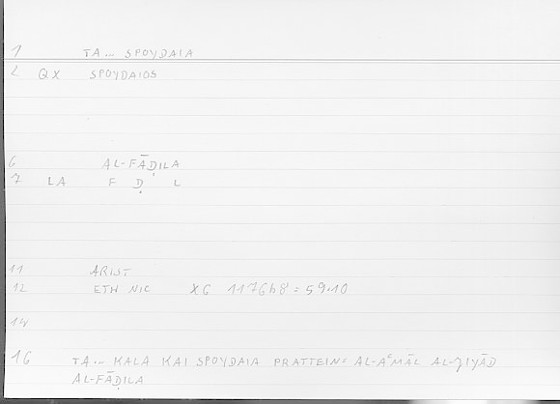 1 TA... SPOYDAIA
2 QX SPOYDAIOS
6 AL-FĀḌILA
7 LA F Ḍ L
11 ARIST
12 ETH NIC X6 1176b8 = 59.10
14
16 TA... KALA KAI SPOYDAIA PRATTEIN: AL-AʿMĀL AL-ǦIYĀD
AL-FĀḌILA